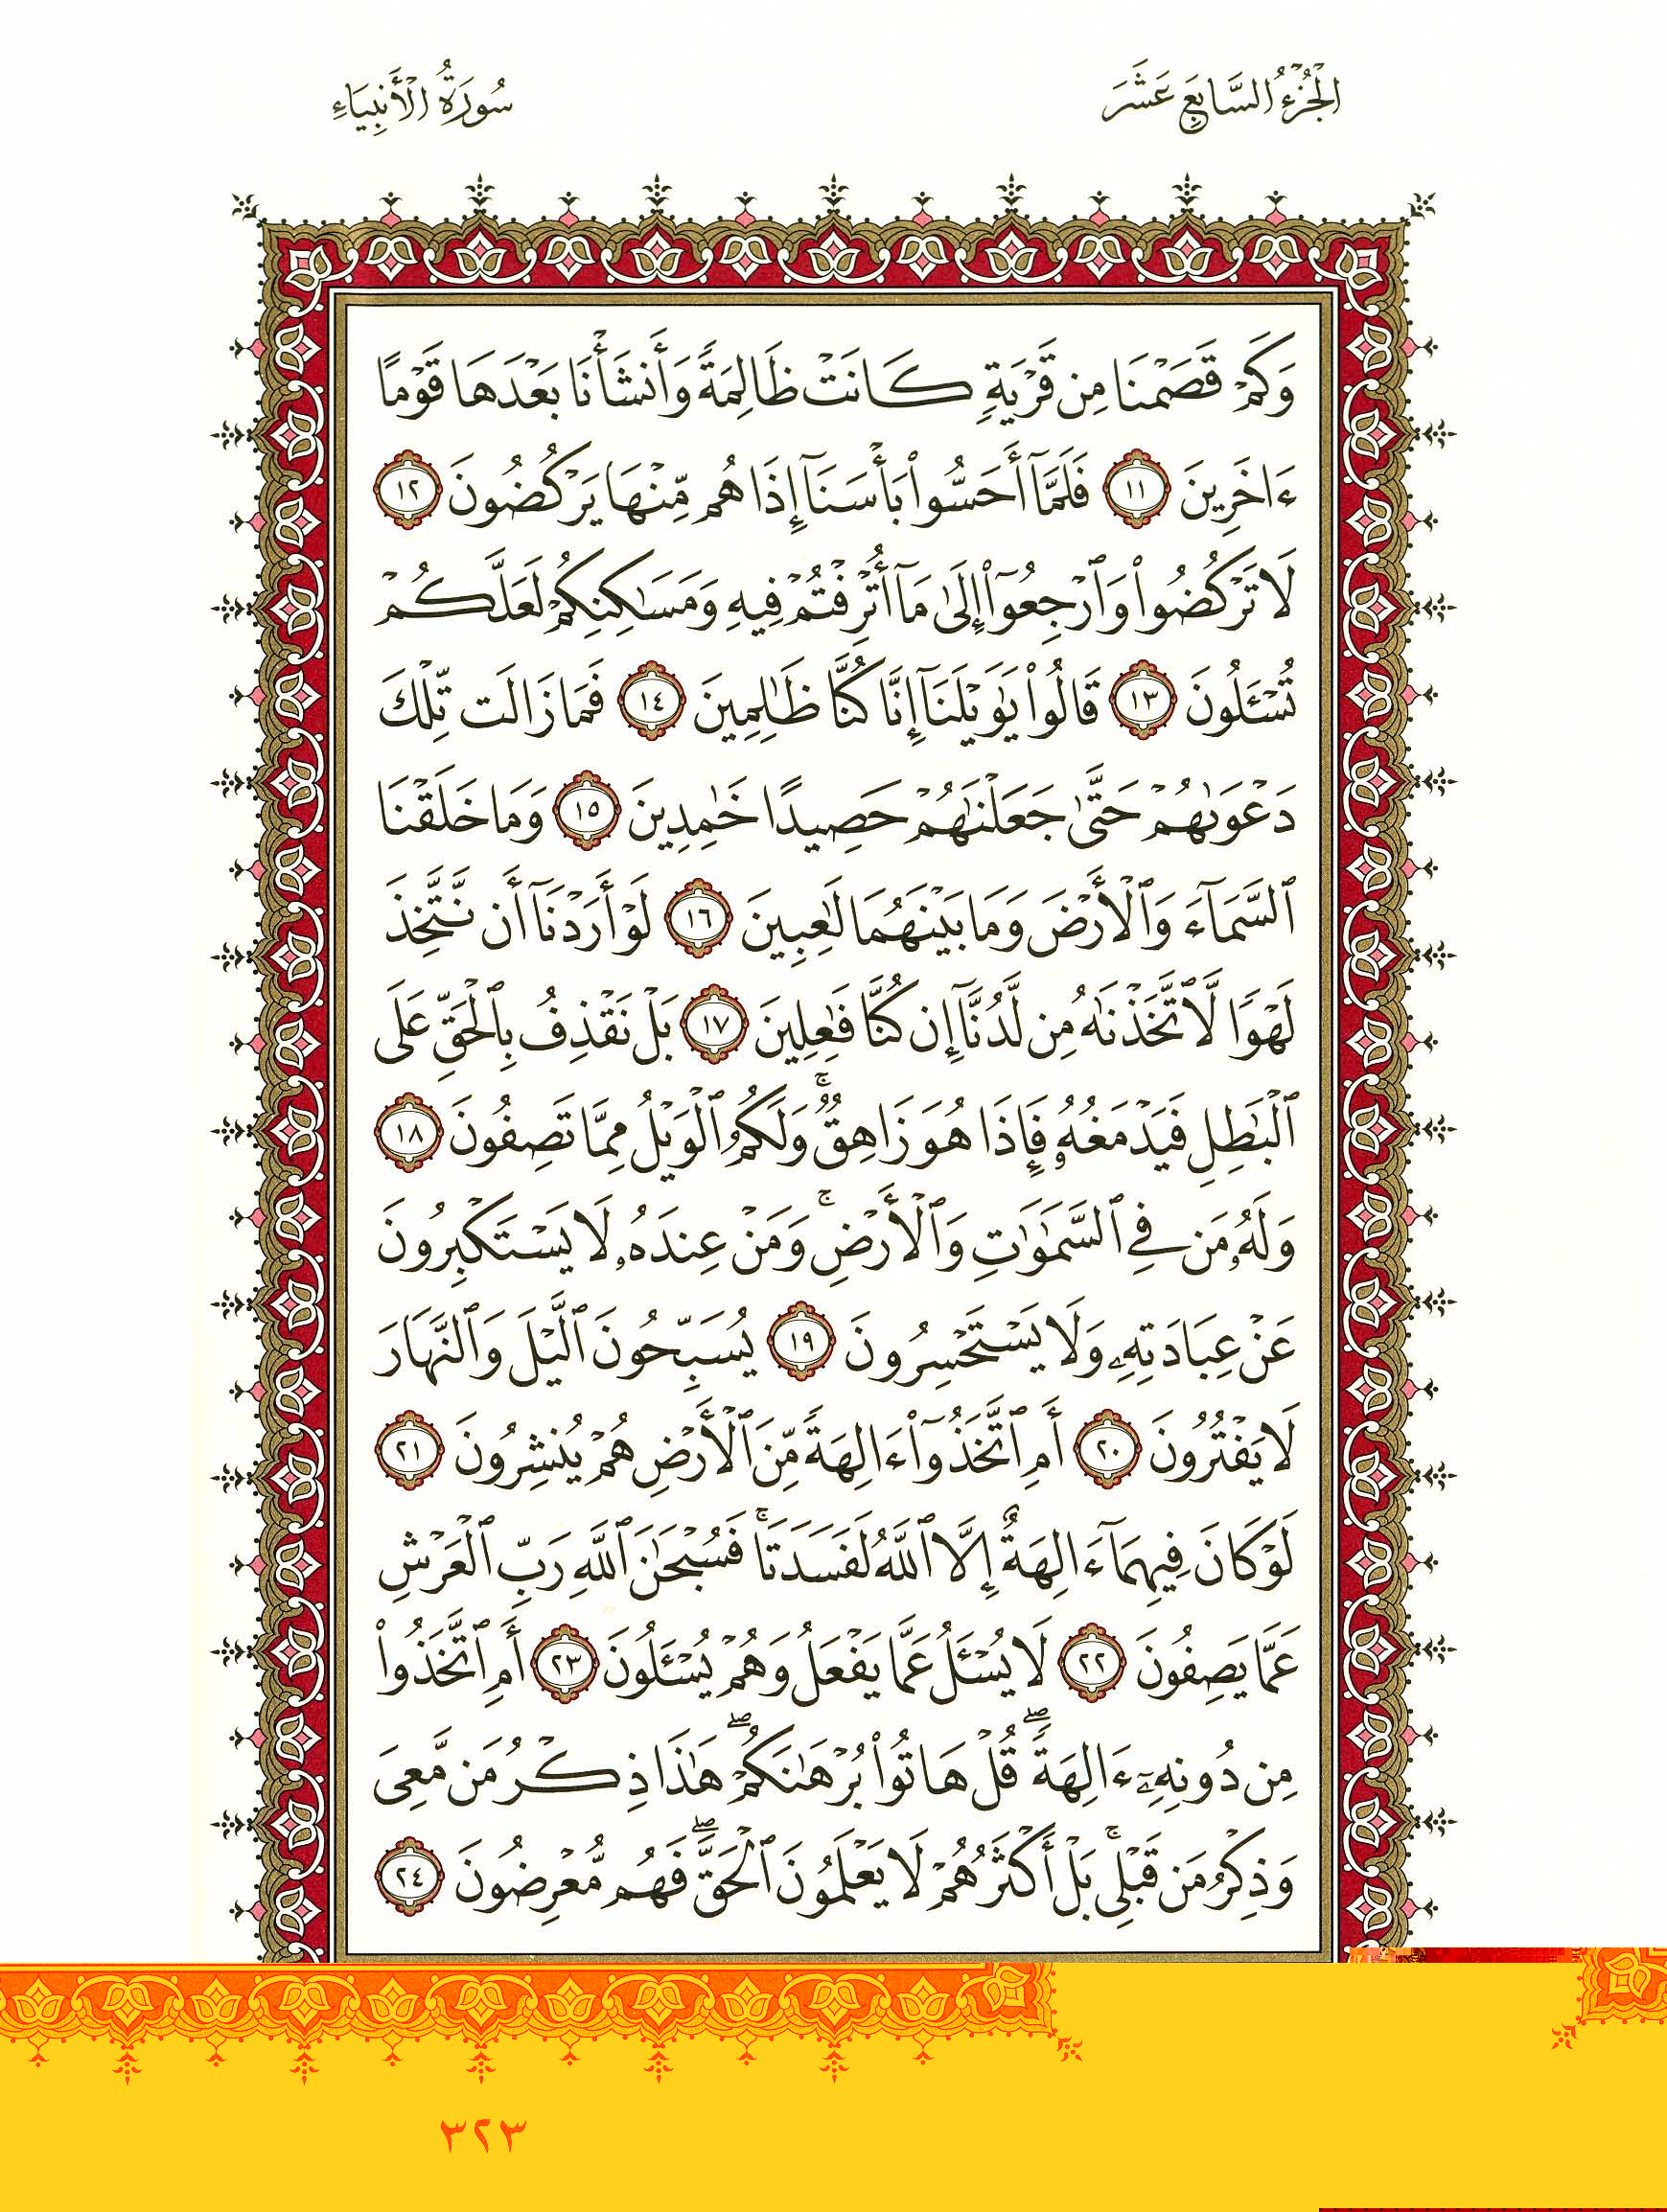 الجُزْءُ السَّابِعَ عَشَرَ
سُورَةُ الأَنبِيَاءِ
وَكَمْ قَصَمْنَا مِن قَرْيَةٍ كَانَتْ ظَالِمَةً وَأَنشَأْنَا بَعْدَهَا قَوْمًا
ءَاخَرِينَ ١١ فَلَمَّآ أَحَسُّوا۟ بَأْسَنَآ إِذَا هُم مِّنْهَا يَرْكُضُونَ ١٢
لَا تَرْكُضُوا۟ وَٱرْجِعُوٓا۟ إِلَىٰ مَآ أُتْرِفْتُمْ فِيهِ وَمَسَـٰكِنِكُمْ لَعَلَّكُمْ
تُسْـَٔلُونَ ١٣ قَالُوا۟ يَـٰوَيْلَنَآ إِنَّا كُنَّا ظَـٰلِمِينَ ١٤ فَمَا زَالَت تِّلْكَ
دَعْوَىٰهُمْ حَتَّىٰ جَعَلْنَـٰهُمْ حَصِيدًا خَـٰمِدِينَ ١٥ وَمَا خَلَقْنَا
ٱلسَّمَآءَ وَٱلْأَرْضَ وَمَا بَيْنَهُمَا لَـٰعِبِينَ ١٦ لَوْ أَرَدْنَآ أَن نَّتَّخِذَ
لَهْوًا لَّٱتَّخَذْنَـٰهُ مِن لَّدُنَّآ إِن كُنَّا فَـٰعِلِينَ ١٧ بَلْ نَقْذِفُ بِٱلْحَقِّ عَلَى
ٱلْبَـٰطِلِ فَيَدْمَغُهُۥ فَإِذَا هُوَ زَاهِقٌ ۚ وَلَكُمُ ٱلْوَيْلُ مِمَّا تَصِفُونَ ١٨
وَلَهُۥ مَن فِى ٱلسَّمَـٰوَٰتِ وَٱلْأَرْضِ ۚ وَمَنْ عِندَهُۥ لَا يَسْتَكْبِرُونَ
عَنْ عِبَادَتِهِۦ وَلَا يَسْتَحْسِرُونَ ١٩ يُسَبِّحُونَ ٱلَّيْلَ وَٱلنَّهَارَ
لَا يَفْتُرُونَ ٢٠ أَمِ ٱتَّخَذُوٓا۟ ءَالِهَةً مِّنَ ٱلْأَرْضِ هُمْ يُنشِرُونَ ٢١
لَوْ كَانَ فِيهِمَآ ءَالِهَةٌ إِلَّا ٱللَّهُ لَفَسَدَتَا ۚ فَسُبْحَـٰنَ ٱللَّهِ رَبِّ ٱلْعَرْشِ
عَمَّا يَصِفُونَ ٢٢ لَا يُسْـَٔلُ عَمَّا يَفْعَلُ وَهُمْ يُسْـَٔلُونَ ٢٣ أَمِ ٱتَّخَذُوا۟
مِن دُونِهِۦٓ ءَالِهَةً ۖ قُلْ هَاتُوا۟ بُرْهَـٰنَكُمْ ۖ هَـٰذَا ذِكْرُ مَن مَّعِىَ
وَذِكْرُ مَن قَبْلِى ۚ بَلْ أَكْثَرُهُمْ لَا يَعْلَمُونَ ٱلْحَقَّ ۖ فَهُم مُّعْرِضُونَ ٢٤
٣٢٣